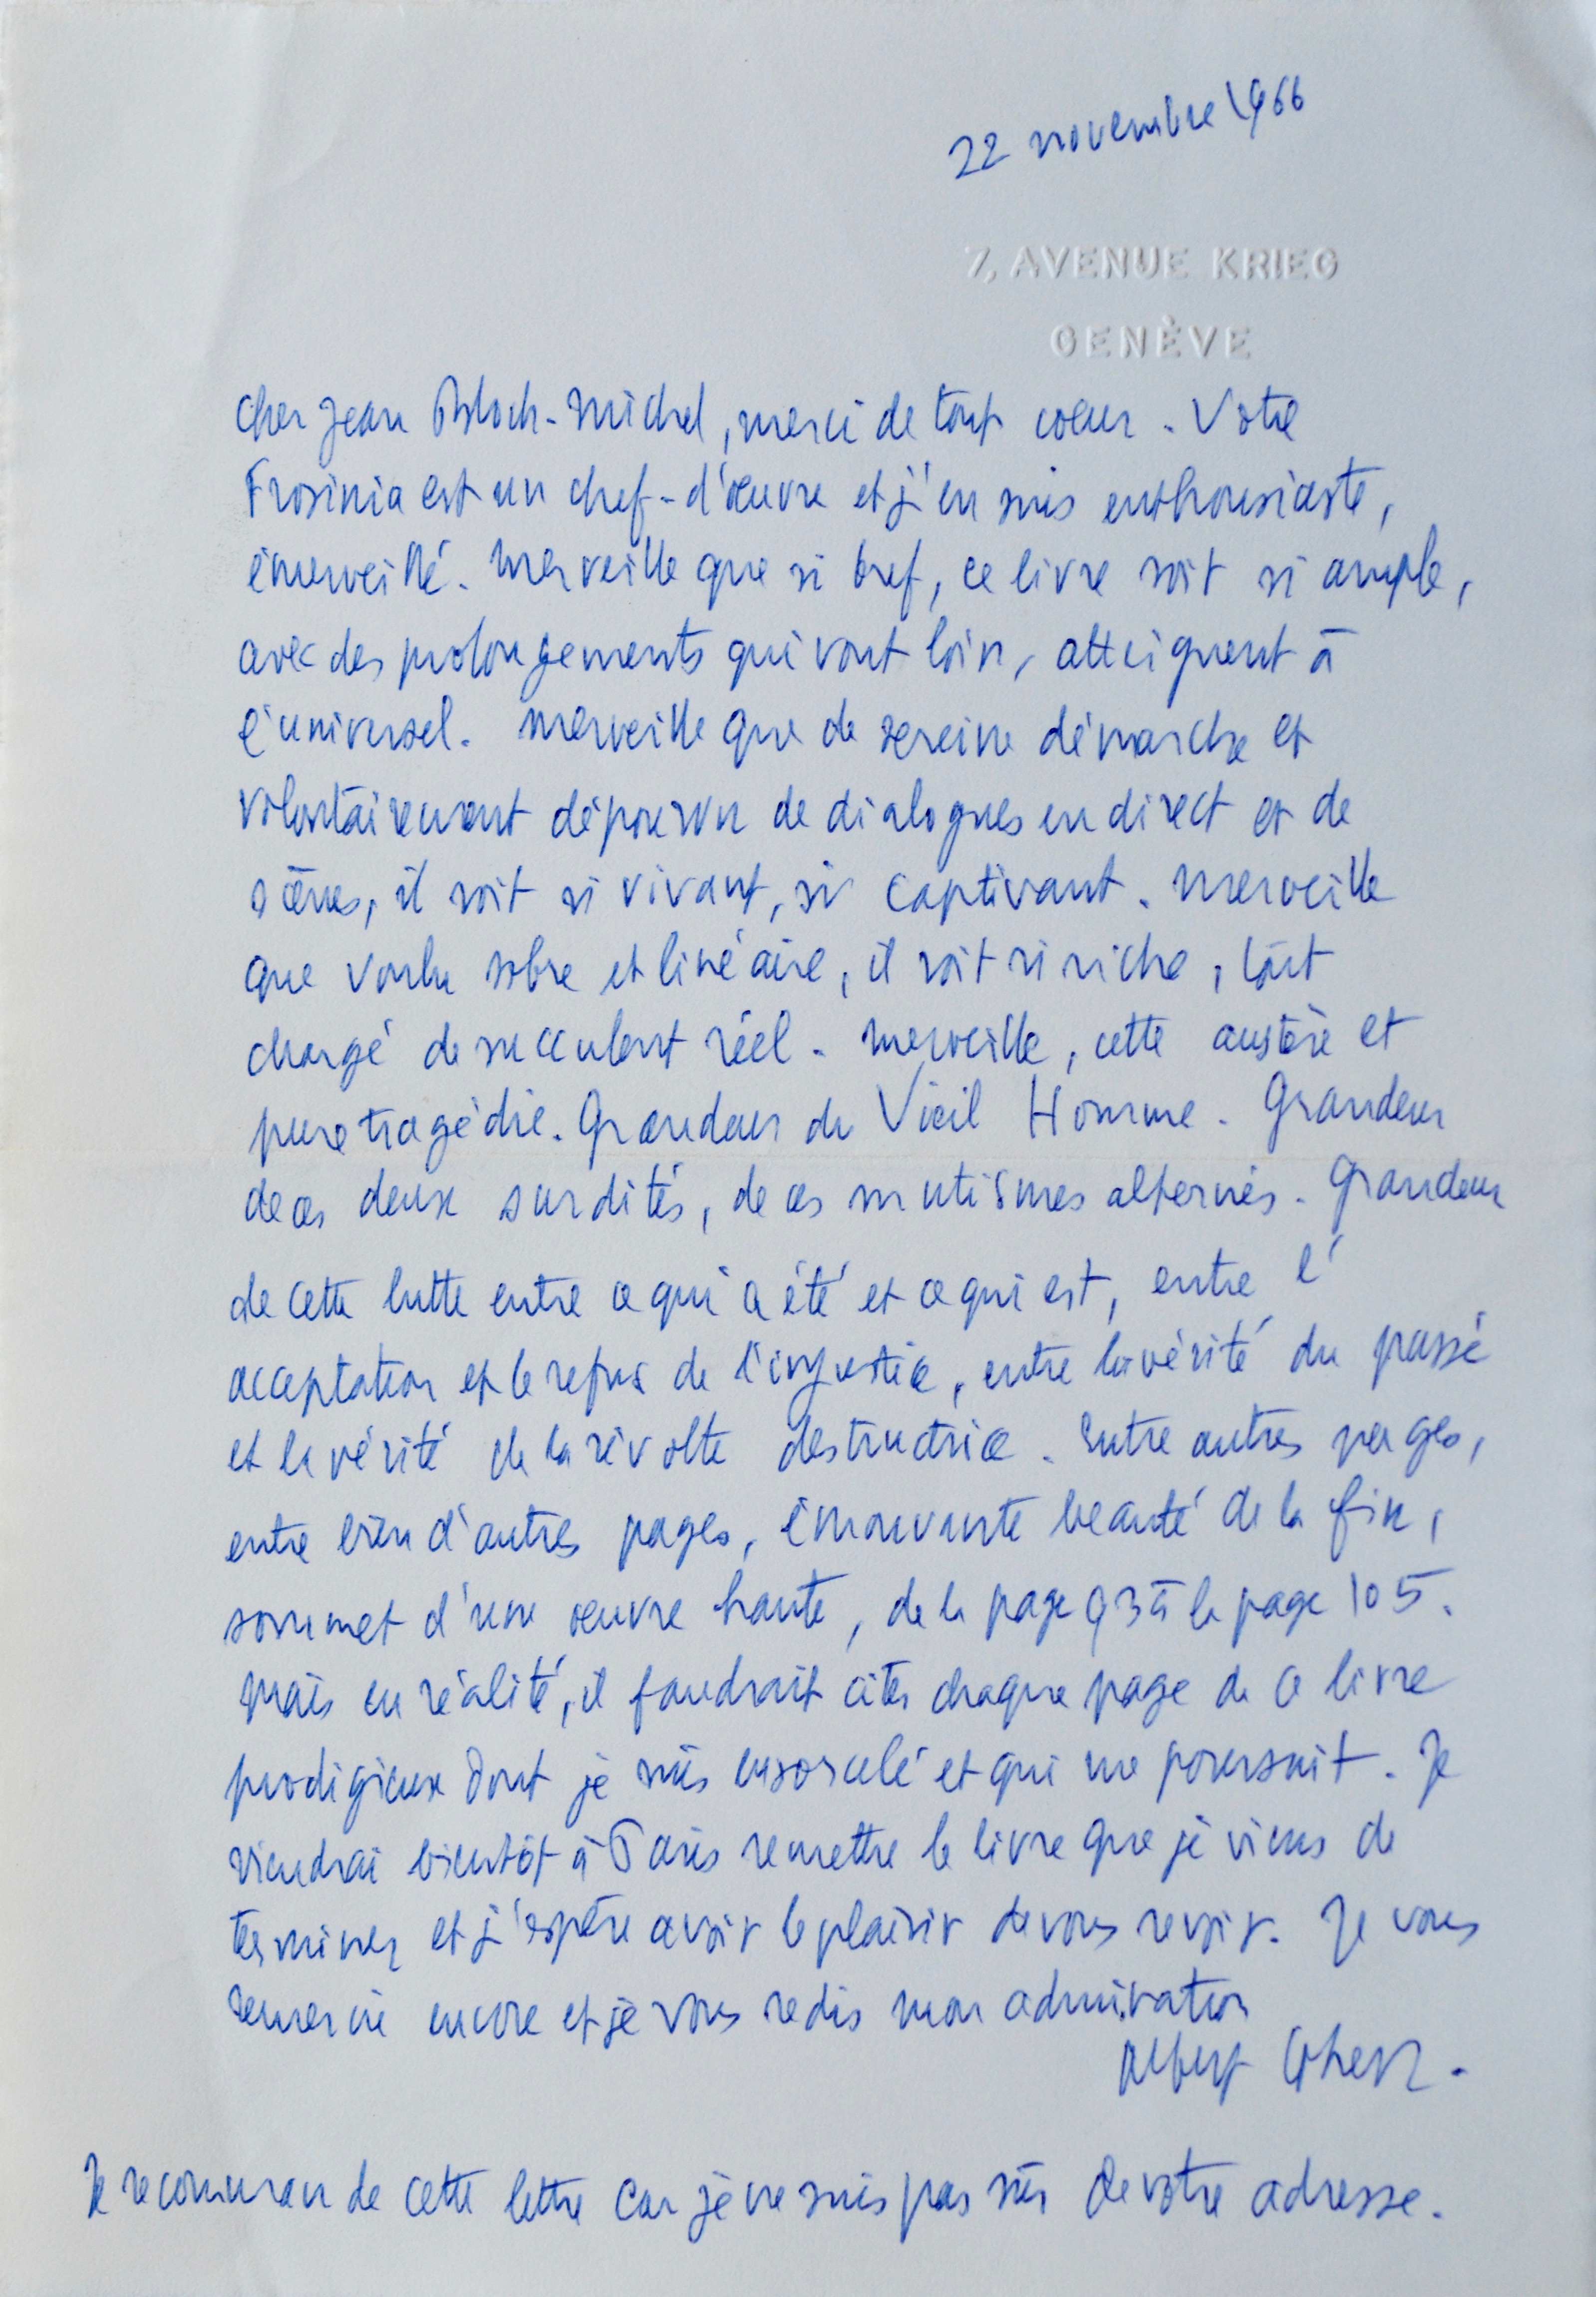 22 novembre 1966
7, AVENUE KRIEG
GENÈVE
Cher Jean Bloch-Michel, merci de tout coeur. Votre
Frosinia est un chef-d'œuvre et j'en suis enthousiaste,
émerveillé. Merveille que si bref, ce livre soit si ample,
avec des prolongements qui vont loin, atteignent à
l'universel. Merveille que de sereine démarche et
volontairement dépourvu de dialogues en direct et de
scènes, il soit si vivant, si captivant. Merveille
que voulu sobre et linéaire, il soit si riche, tout
chargé de succulent réel. Merveille, cette austère et
pure tragédie. Grandeur du Vieil Homme. Grandeur
de ces deux surdités, de ces mutismes alternés. Grandeur
de cette lutte entre ce qui a été et ce qui est, entre l'
acceptation et le refus de l'injustice, entre la vérité du passé
et la vérité de la révolte destructrice. Entre autres pages,
entre bien d'autres pages, émouvante beauté de la fin,
sommet d'une œuvre haute, de la page 93 à la page 105.
Mais en réalité, il faudrait citer chaque page de ce livre
prodigieux dont je suis ensorcelé et qui me poursuit. Je
viendrai bientôt à Paris remettre le livre que je viens de
terminer et j'espère avoir le plaisir de vous revoir. Je vous
remercie encore et je vous redis mon admiration
Albert Cohen.
Je recommande cette lettre car je ne suis pas sûr de votre adresse.